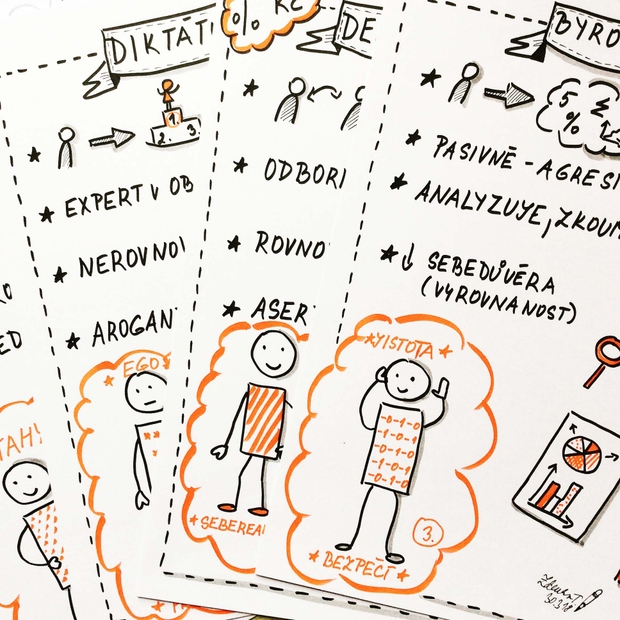 DIKTAT
1.
2.
3.
EXPERT V OB
NEROVNO
AROGAN
EGO
% KČ
DE
ODBORI
ROVNO
ASER
SEBEREA
BYRO
5
%
PASIVNĚ - AGRESI
ANALYZUJE, ZKOUM
↓ SEBEDŮVĚRA
(VYROVNANOST)
JISTOTA
-0-1-0
-1-0-1
-0-1-0
-1-0-1
-0-1-0
3.
BEZPEČÍ
TAH!
ED
30.3.18